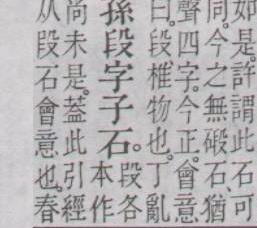 如是。許謂此石可
同。今之無碬石、猶
聲四字。今正。會意
曰。段、椎物也。丁亂
孫段字子石。段各
本作
尚未是。蓋此引經
从段石會意也。春